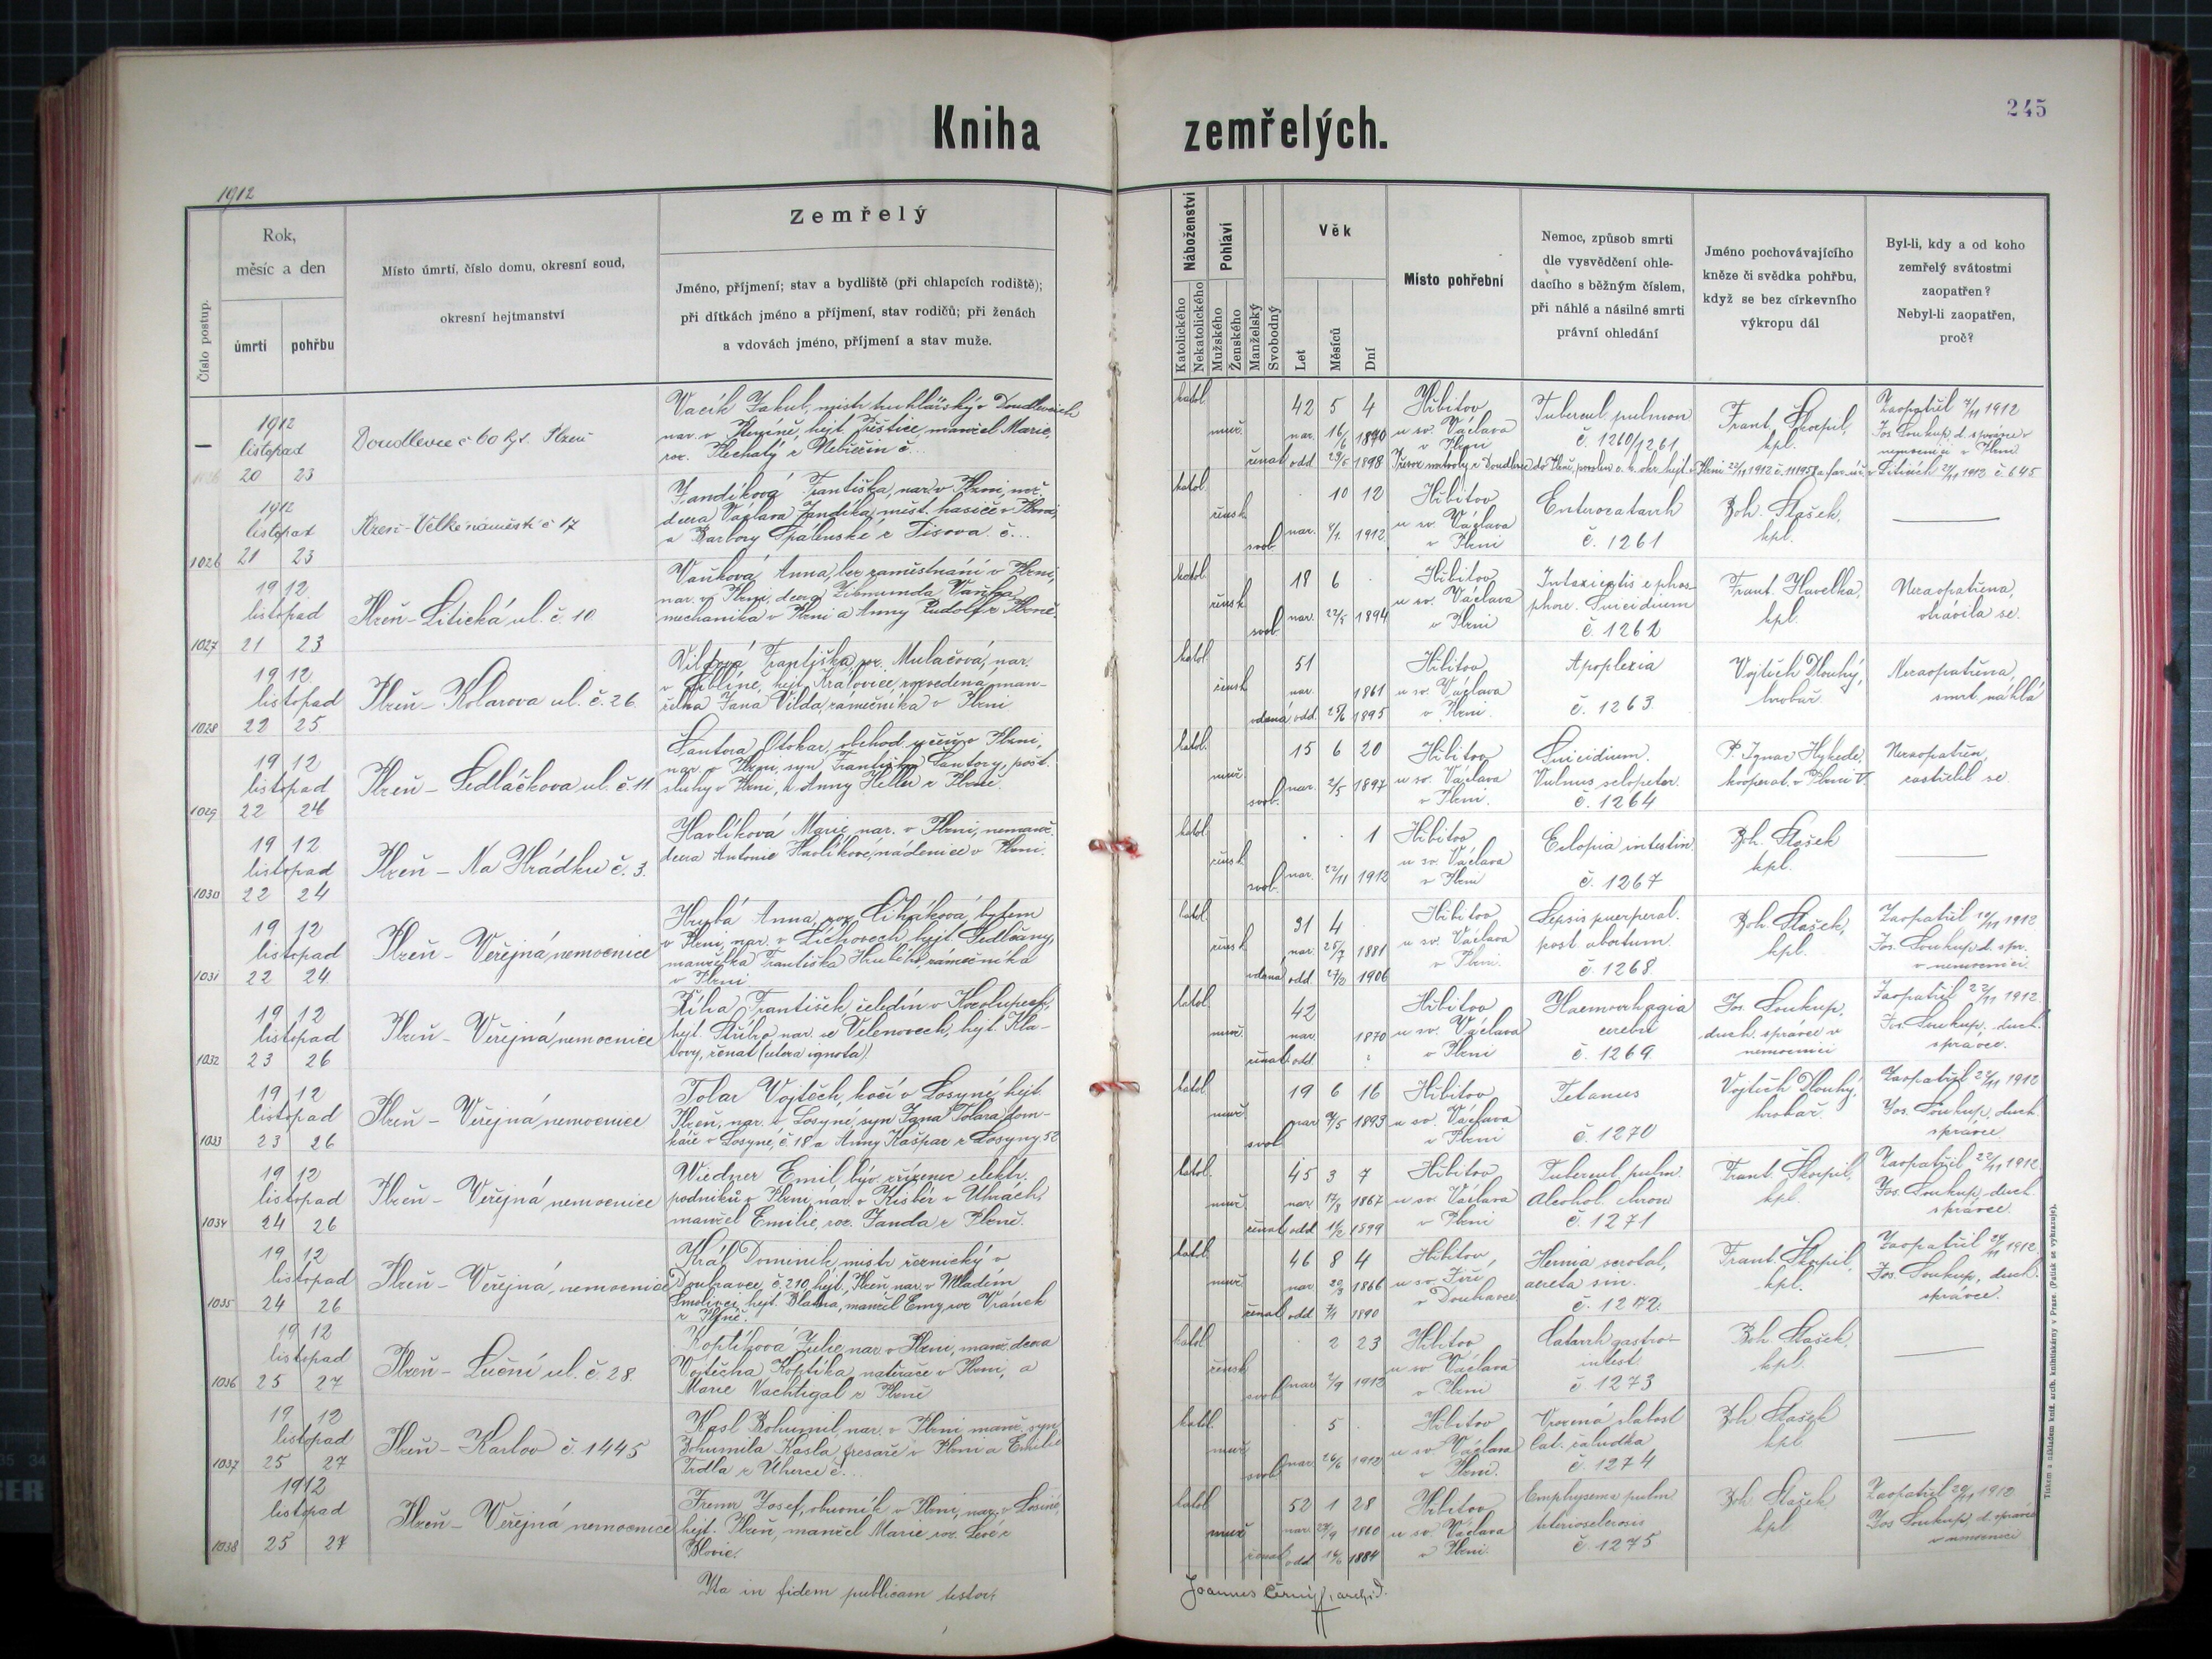 Kniha zemřelých.
245
1912
Číslo postup.
Rok,
měsíc a den
úmrtí
pohřbu
Místo úmrtí, číslo domu, okresní soud,
okresní hejtmanství
Zemřelý
Jméno, příjmení; stav a bydliště (při chlapcích rodiště);
při dítkách jméno a příjmení, stav rodičů; při ženách
a vdovách jméno, příjmení a stav muže.
Náboženství
Katolického
Nekatolického
Pohlaví
Mužského
Ženského
Manželský
Svobodný
Věk
Let
Měsíců
Dní
Místo pohřební
Nemoc, způsob smrti
dle vysvědčení ohle-
dacího s běžným číslem,
při náhlé a násilné smrti
právní ohledání
Jméno pochovávajícího
kněze či svědka pohřbu,
když se bez církevního
výkropu dál
Byl-li, kdy a od koho
zemřelý svátostmi
zaopatřen?
Nebyl-li zaopatřen,
proč?
1912
listopad
20 23
Doudlevce č 60 Plzeň
Vacík Jakub, mistr truhlářský v Doudlevcích
nar. v hejt. Přeštice, manžel Marie,
roz. Plechatý z Nebílčin č...
katol.
muž.
ženat
42 5 4
nar. 16/6 1870
odd. 29/5 1898
Hřbitov
u sv. Václava
v Plzni
Tubercul. pulmon
č. 1260/1261
Frant. Škorpil,
kpl.
Zaopatřil 7/11 1912
Jos. Soukup, d. správce v
nemocnici v Plzni
Převoz mrtvoly z Doudlevec do Plzně, povolen c. k. okr. hejt. v Plzni 22/11 1912 č. 111951 a far. úř. v Liticích 21/11 1912 č. 645
1912
listopad
1026 21 23
Plzeň-Velké náměstí č 17
Jandíková Františka, nar. v Plzni, mž.
dcera Václava Jandíka, měst. hasiče v Plzni,
a Barbory Spálenské z Tisova č...
katol.
žensk.
svob.
10 12
nar. 8/1. 1912
Hřbitov
u sv. Václava
v Plzni
Enterocatarrh
č. 1261
Boh. Stašek,
kpl.
1912
listopad
1027 21 23
Plzeň-Litická ul. č. 10
Vaňková Anna, bez zaměstnání v Plzni,
nar. v Plzni, dcera Zikmunda Vaňka,
mechanika v Plzni a Anny Rudolf z Plzně.
katol.
žensk.
svob.
18 6
nar. 22/5 1894
Hřbitov
u sv. Václava
v Plzni
Intoxicatio e phos-
phore. Suicidium
č. 1262
Frant. Havelka,
kpl.
Nezaopatřena,
otrávila se.
1912.
listopad
1028 22 25
Plzeň-Kolarova ul. č. 26
Vildová Františka, roz. Mulačová, nar.
v hejt. Kralovice, rozvedená man-
želka Jana Vilda, zámečníka v Plzni
katol.
žensk.
vdaná
51
nar. 1861
odd. 25/6 1895
Hřbitov
u sv. Václava
v Plzni.
Apoplexia
č. 1263.
Vojtěch Dlouhý,
hrobař.
Nezaopatřena,
smrt náhlá
1912
listopad
1029 22 24
Plzeň-Sedláčkova ul. č. 11
Šantora Otokar, obchod. učeň v Plzni,
nar. v Plzni, syn Františka Šantory, pošt.
sluhy v Plzni, a Anny Heller z Plzně.
katol.
muž.
svob.
15 6 20
nar. 2/5 1897
Hřbitov
u sv. Václava
v Plzni.
Suicidium.
Vulnus sclopetar.
č. 1264
P. Ignac Hykede,
kooperat. v Plzni V.
Nezaopatřen,
zastřelil se.
1912
listopad
1030 22 24
Plzeň-Na Hrádku č. 3.
Havlíková Marie, nar. v Plzni, nemanž.
dcera Antonie Havlíkové, nádenice v Plzni.
katol.
žensk.
svob.
1
nar. 22/11 1912
Hřbitov
u sv. Václava
v Plzni
Eclopia intestin.
č. 1267
Boh. Stašek
kpl.
1912
listopad
1031 22 24
Plzeň-Veřejná nemocnice
Hrubá Anna, roz. Čiháková, bytem
v Plzni, nar. v Líchovech, hejt. Sedlčany,
manželka Františka Hrubého, zámečníka
v Plzni
katol.
žensk.
vdaná
31 4
nar. 25/7 1881
odd. 1906
Hřbitov
u sv. Václava
v Plzni.
Sepsis puerperal.
post abortum.
č. 1268
Boh. Stašek,
kpl.
Zaopatřil 19/11 1912
Jos. Soukup d. spr.
v nemocnici.
1912
listopad
1032 23 26
Plzeň-Veřejná nemocnice
Říha František, čeledín v Kozolupech,
hejt. Stříbro, nar. ve Velenovech, hejt. Kla-
tovy, ženat (ulteria ignota)
katol.
muž.
ženat
42
nar. 1870
odd. ?
Hřbitov
u sv. Václava
v Plzni
Haemorrhagia
cerebri
č. 1269
Jos. Soukup,
duch. správce v
nemocnici
Zaopatřil 22/11 1912.
Jos. Soukup, duch.
správce.
1912
listopad
1033 23 26
Plzeň-Veřejná nemocnice
Tolar Vojtěch, kočí v Losyné, hejt.
Plzeň, nar. v Losyné, syn Jana Tolara, dom-
káře v Losyné, č 18 a Anny Kašpar z Losyny 52
katol.
muž.
svob.
19 6 16
nar. 7/5 1893
Hřbitov
u sv. Václava
v Plzni
Tetanus
č. 1270
Vojtěch Dlouhý,
hrobař.
Zaopatřil 22/11 1912
Jos. Soukup, duch.
správce
1912
listopad
1034 24 26
Plzeň-Veřejná nemocnice
Wiedner Emil, býv. zřízenec elektr.
podniků v Plzni, nar. v Kisbér v Uhrách,
manžel Emilie, roz. Janda z Plzně.
katol.
muž.
ženat
45 3 7
nar. 17/8 1867
odd. 1899
Hřbitov
u sv. Václava
v Plzni
Tubercul. pulm.
Alcohol. chron
č. 1271
Frant. Škorpil,
kpl.
Zaopatřil 22/11 1912.
Jos. Soukup, duch.
správce.
1912
listopad
1035 24 26
Plzeň-Veřejná nemocnice
Král Dominik, mistr řeznický v
Doubravce, č. 210, hejt. Plzeň, nar. v Mladém
Smolivci, hejt. Blatná, manžel Emy, roz Vránek
z Plzně.
katol.
muž.
ženat
46 8 4
nar. 20/3 1866
odd. 7/1 1890
Hřbitov
u sv. Jiří
v Doubravce
Hernia scrotal,
acreta sin.
č. 1272.
Frant. Škorpil,
kpl.
Zaopatřil 24/11 1912.
Jos. Soukup, duch.
správce.
1912
listopad
1036 25 27
Plzeň-Luční ul. č. 28.
Koptíková Julie, nar. v Plzni, manž. dcera
Vojtěcha Koptíka, natěrače v Plzni, a
Marie Vachtigal z Plzně
katol.
žensk.
svob.
2 23
nar. 2/9 1912
Hřbitov
u sv Václava
v Plzni
Catarrh gastro-
intest.
č 1273
Boh. Stašek,
kpl.
1912
listopad
1037 25 27
Plzeň-Karlov č. 1445
Kasl Bohumil, nar. v Plzni manž. syn
Bohumila Kasla, fresaře v Plzni a Emilie
Trdla z Úherce č...
katol.
muž.
svob.
5
nar. 26/6 1912
Hřbitov
u sv Václava
v Plzni.
Vrozená slabost
Cat. žaludka
č. 1274
Boh Stašek
kpl
1912
listopad
1038 25 27
Plzeň-Veřejná nemocnice
Frenr Josef, obuvník v Plzni, nar. v Losiné,
hejt. Plzeň, manžel Marie roz. Levé z
Blovic.
katol.
muž
ženat
52 1 28
nar. 27/9 1860
odd 1884
Hřbitov
u sv. Václava
v Plzni.
Emphysema pulm
Arteriosclerosis
č. 1275
Boh. Stašek
kpl
Zaopatřil 1912
Jos Soukup d. správce
v nemocnici
Ita in fidem publicam testor:
Joannes Černý, archid.
Tiskem a nákladem kníž. arcib. knihtiskárny v Praze. (Patisk se vyhrazuje).